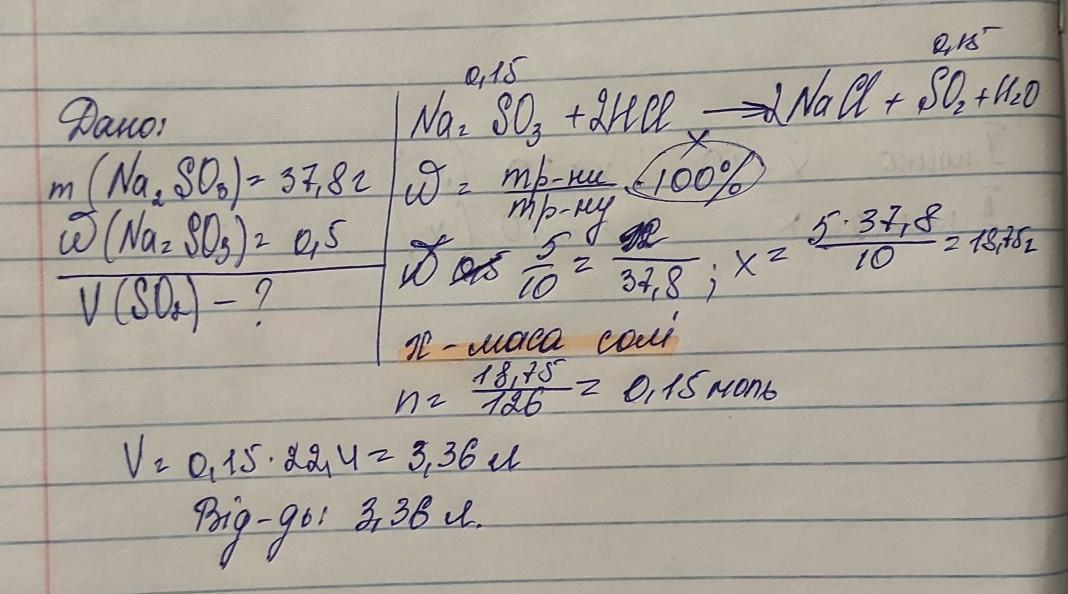 Дано:
m(Na₂SO₃) = 37,8г
ω(Na₂SO₃) = 0,5
V(SO₂) - ?
0,15 0,15
Na₂SO₃ + 2HCl → 2NaCl + SO₂ + H₂O
x
ω = mр-ни / mр-ну · 100%
5/10 = /37,8 ; x = 5·37,8/10 = 18,75г
x - маса солі
n = 18,75/126 = 0,15 моль
V = 0,15·22,4 = 3,36 л
Від-дь: 3,36 л.